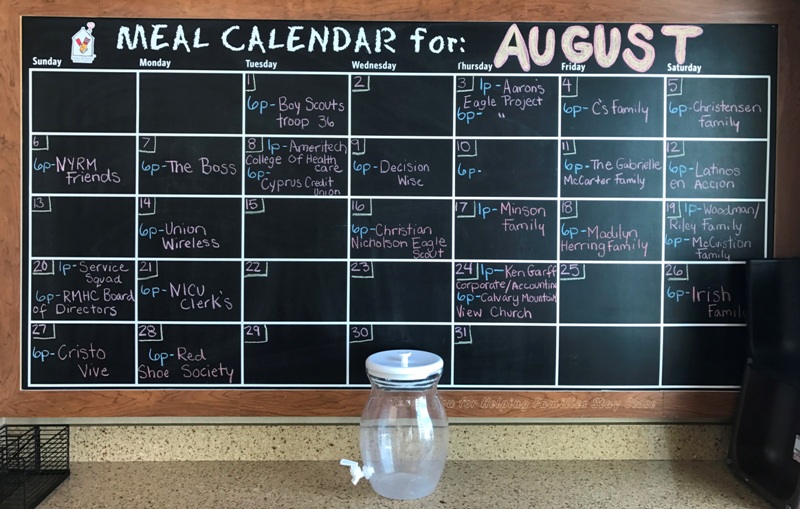 MEAL CALENDAR for: AUGUST
Sunday Monday Tuesday Wednesday Thursday Friday Saturday
1
6p-Boy Scouts
troop 36
2
3 1p-Aaron's
Eagle Project
6p- "
4
6p-C's Family
5
6p-Christensen
Family
6
6p-NYRM
Friends
7
6p-The Boss
8 1p-Ameritech
College Of Health
care
6p-
Cyprus Credit
Union
9
6p-Decision
Wise
10
6p-
11
6p-The Gabrielle
McCarter Family
12
6p-Latinos
en Accion
13
14
6p-Union
Wireless
15
16
6p-Christian
Nicholson Eagle
Scout
17 1p-Minson
Family
18
6p-Madilyn
Herring Family
19 1p-Woodman/
Riley Family
6p-McCustion
family
20 1p-Service
Squad
6p-RMHC Board
of Directors
21
6p-NICU
Clerk's
22
23
24 1p-Ken Garff
Corporate/Accounting
6p-Calvary Mountain
View Church
25
26
6p-Irish
Family
27
6p-Cristo
Vive
28
6p-Red
Shoe Society
29
30
31
for Helping Families Stay Close